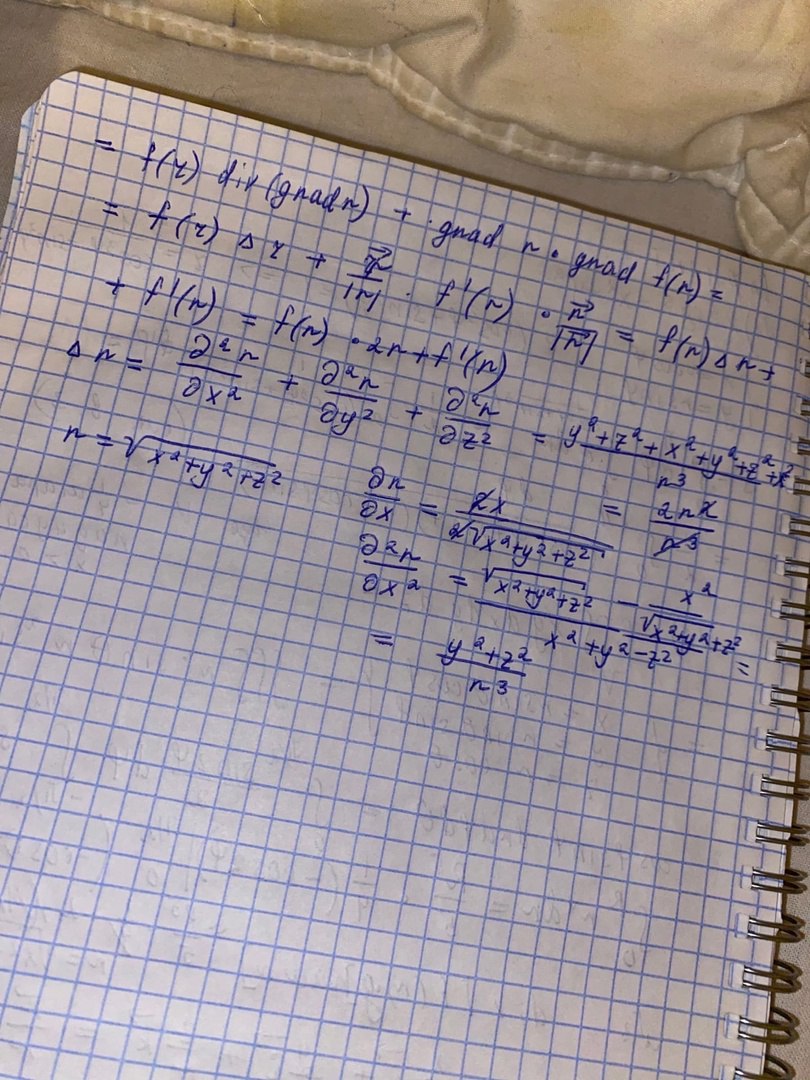 = f(r) div(grad r) + grad r · grad f(r) =
= f(r) Δr + \frac{\vec{r}}{|r|} · f'(r) · \frac{\vec{r}}{|\vec{r}|} = f(r) Δr +
+ f'(r) = f(r) · 2r + f'(r)
Δr = \frac{∂²r}{∂x²} + \frac{∂²r}{∂y²} + \frac{∂²r}{∂z²} = \frac{y²+z²+x²+y²+z²+x²}{r³}
r = \sqrt{x²+y²+z²}
\frac{∂r}{∂x} = \frac{2x}{2\sqrt{x²+y²+z²}} = \frac{2r²}{r³}
\frac{∂²r}{∂x²} = \frac{\sqrt{x²+y²+z²} - \frac{x²}{\sqrt{x²+y²+z²}}}{x²+y²-z²} =
= \frac{y²+z²}{r³}